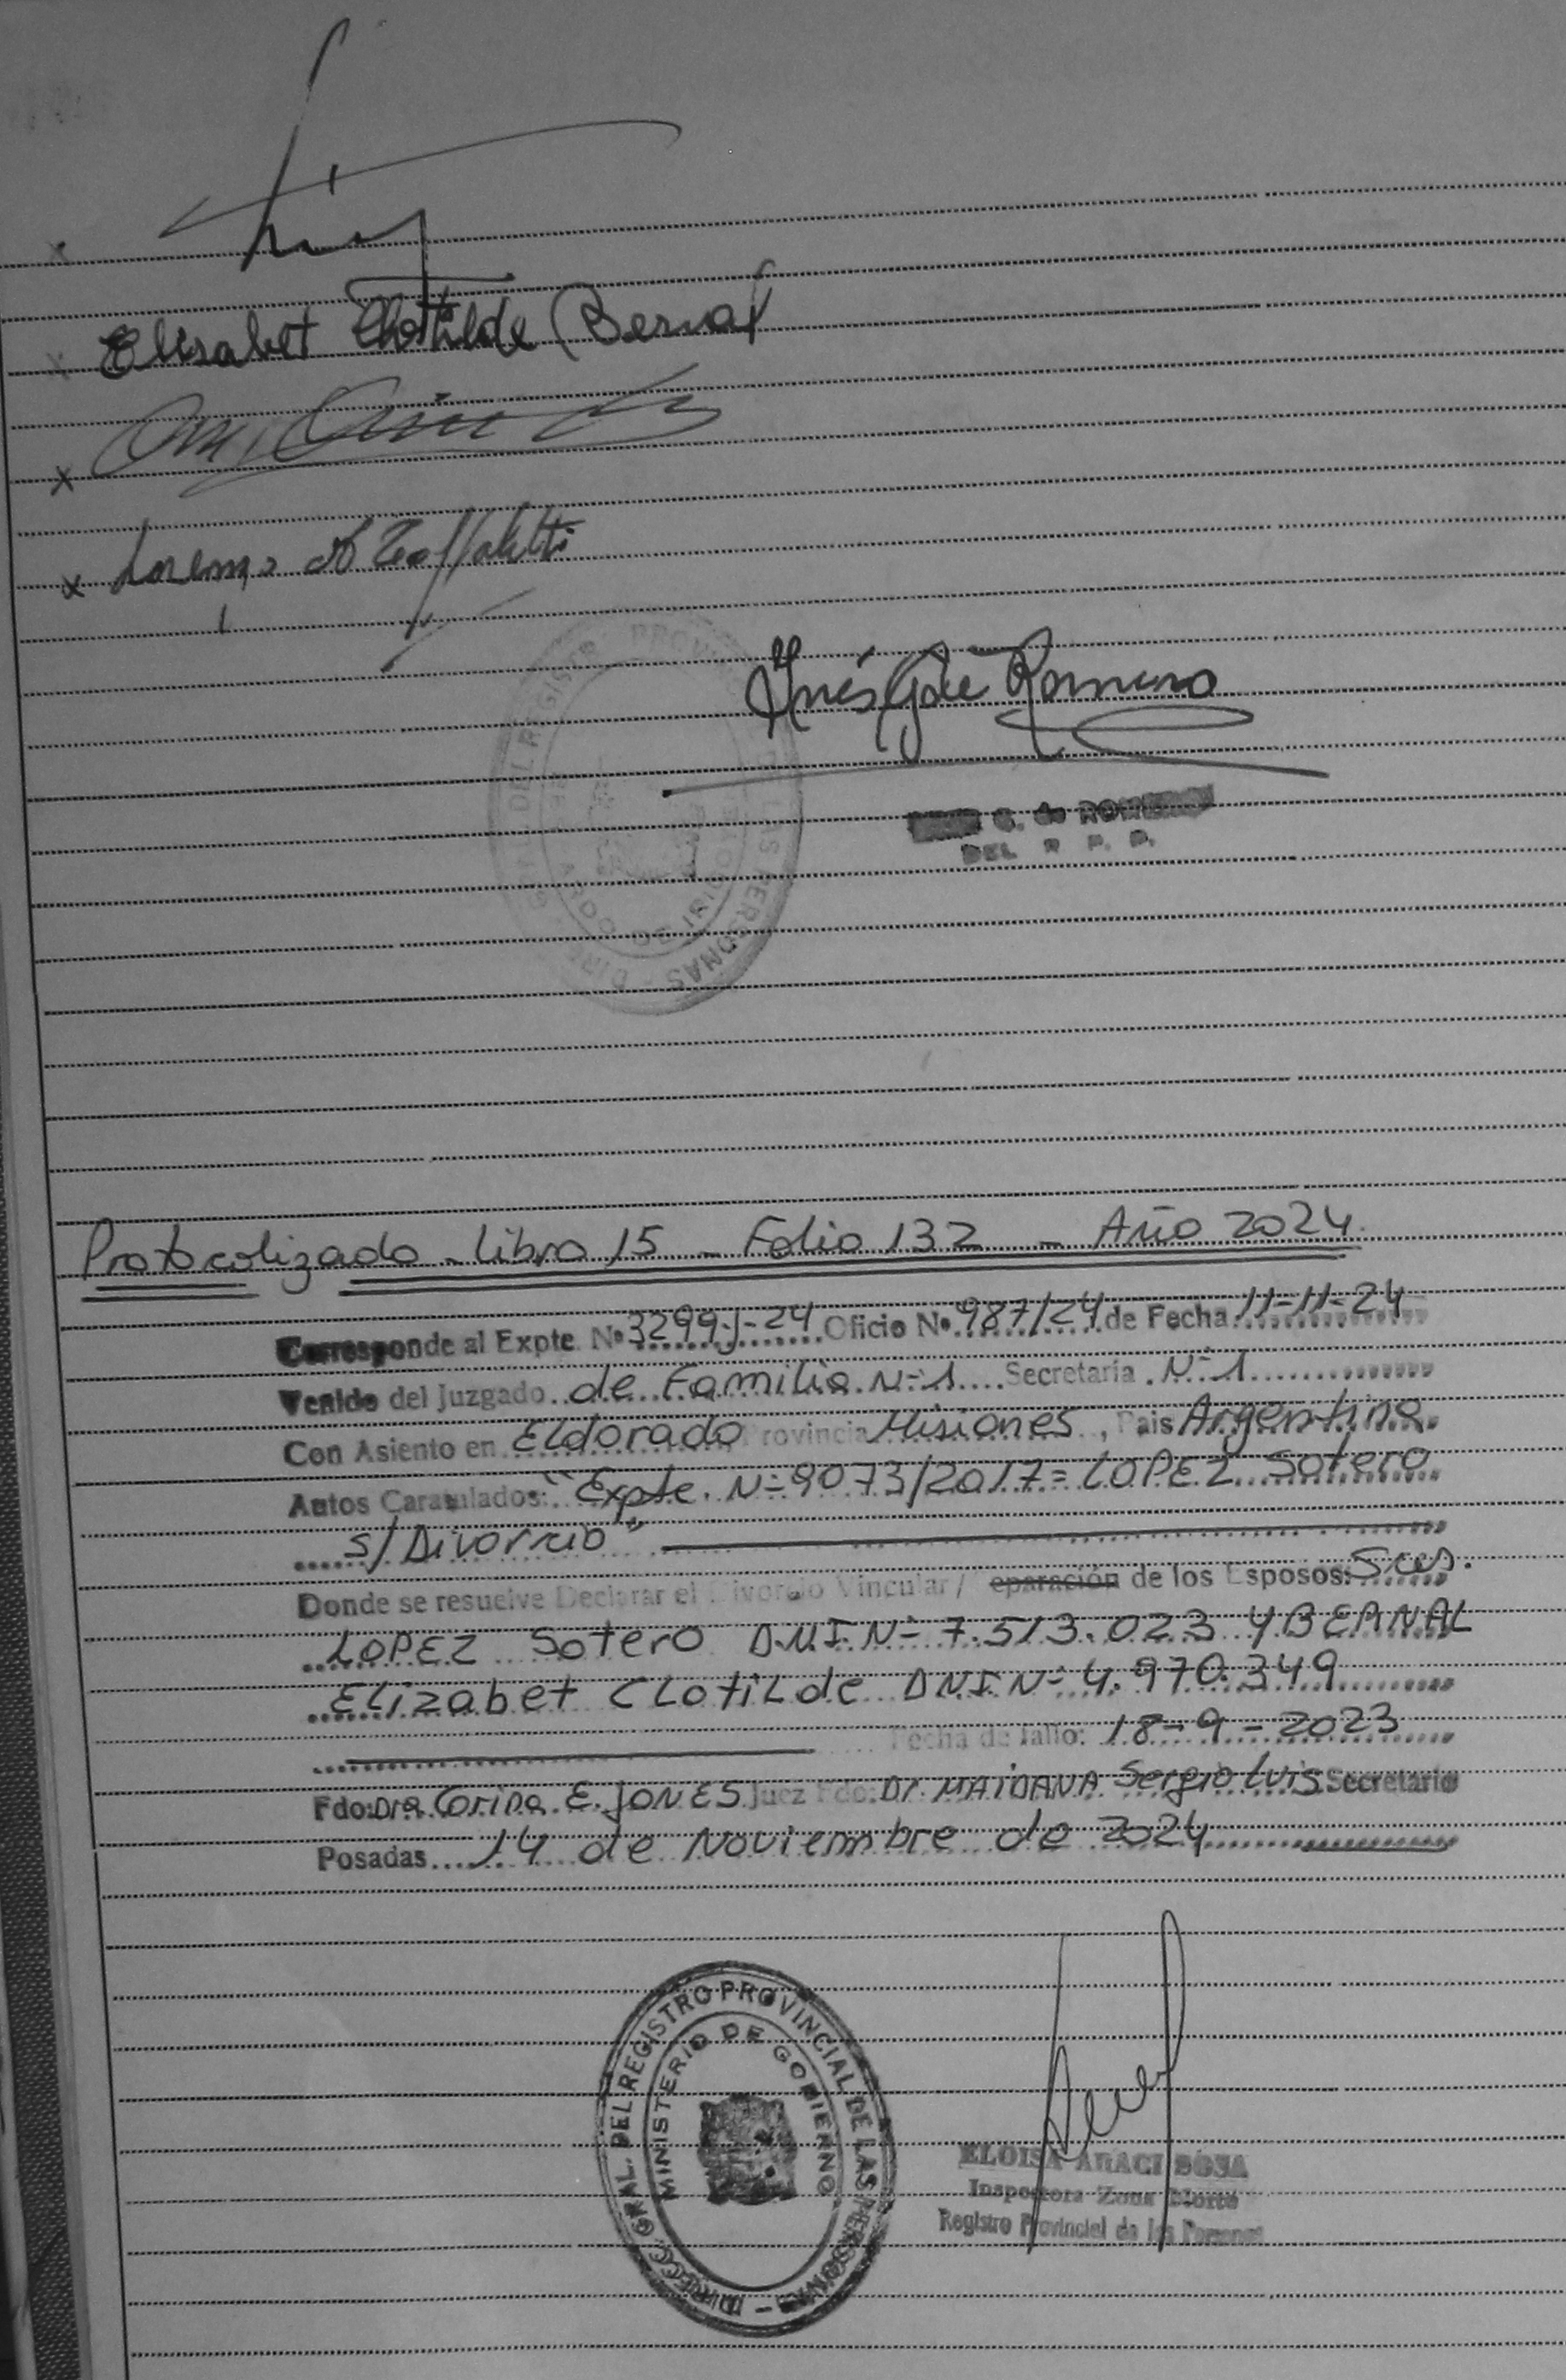 x
x Elisabet Clotilde Bernal
x
x Lorenzo A
Inés G de Romero
G. de ROMERO
DEL R. P. P.
Protocolizado - Libro 15 - Folio 132 - Año 2024.
Corresponde al Expte. Nº 3299-J-24 Oficio Nº 987/24 de Fecha 11-11-24
Venido del Juzgado de Familia Nº 1 Secretaría Nº 1
Con Asiento en Eldorado Provincia Misiones, Pais Argentina.
Autos Caratulados: "Expte. Nº 9073/2017 = LOPEZ Sotero
s/ Divorcio"
Donde se resuelve Declarar el Divorcio Vincular / Separación de los Esposos: Sres.
LOPEZ Sotero D.N.I. Nº 7.513.023 y BERNAL
Elizabet CLotiLde DNI Nº 4.970.349
Fecha de fallo: 18-9-2023
Fdo: Dra Corina E. JONES Juez Fdo: Dr. MAIDANA Sergio Luis Secretario
Posadas 14 de Noviembre de 2024
DIRECC. GRAL. DEL REGISTRO PROVINCIAL DE LAS PERSONAS
MINISTERIO DE GOBIERNO
ELOISA ARACI SOSA
Inspectora Zona Norte
Registro Provincial de las Personas